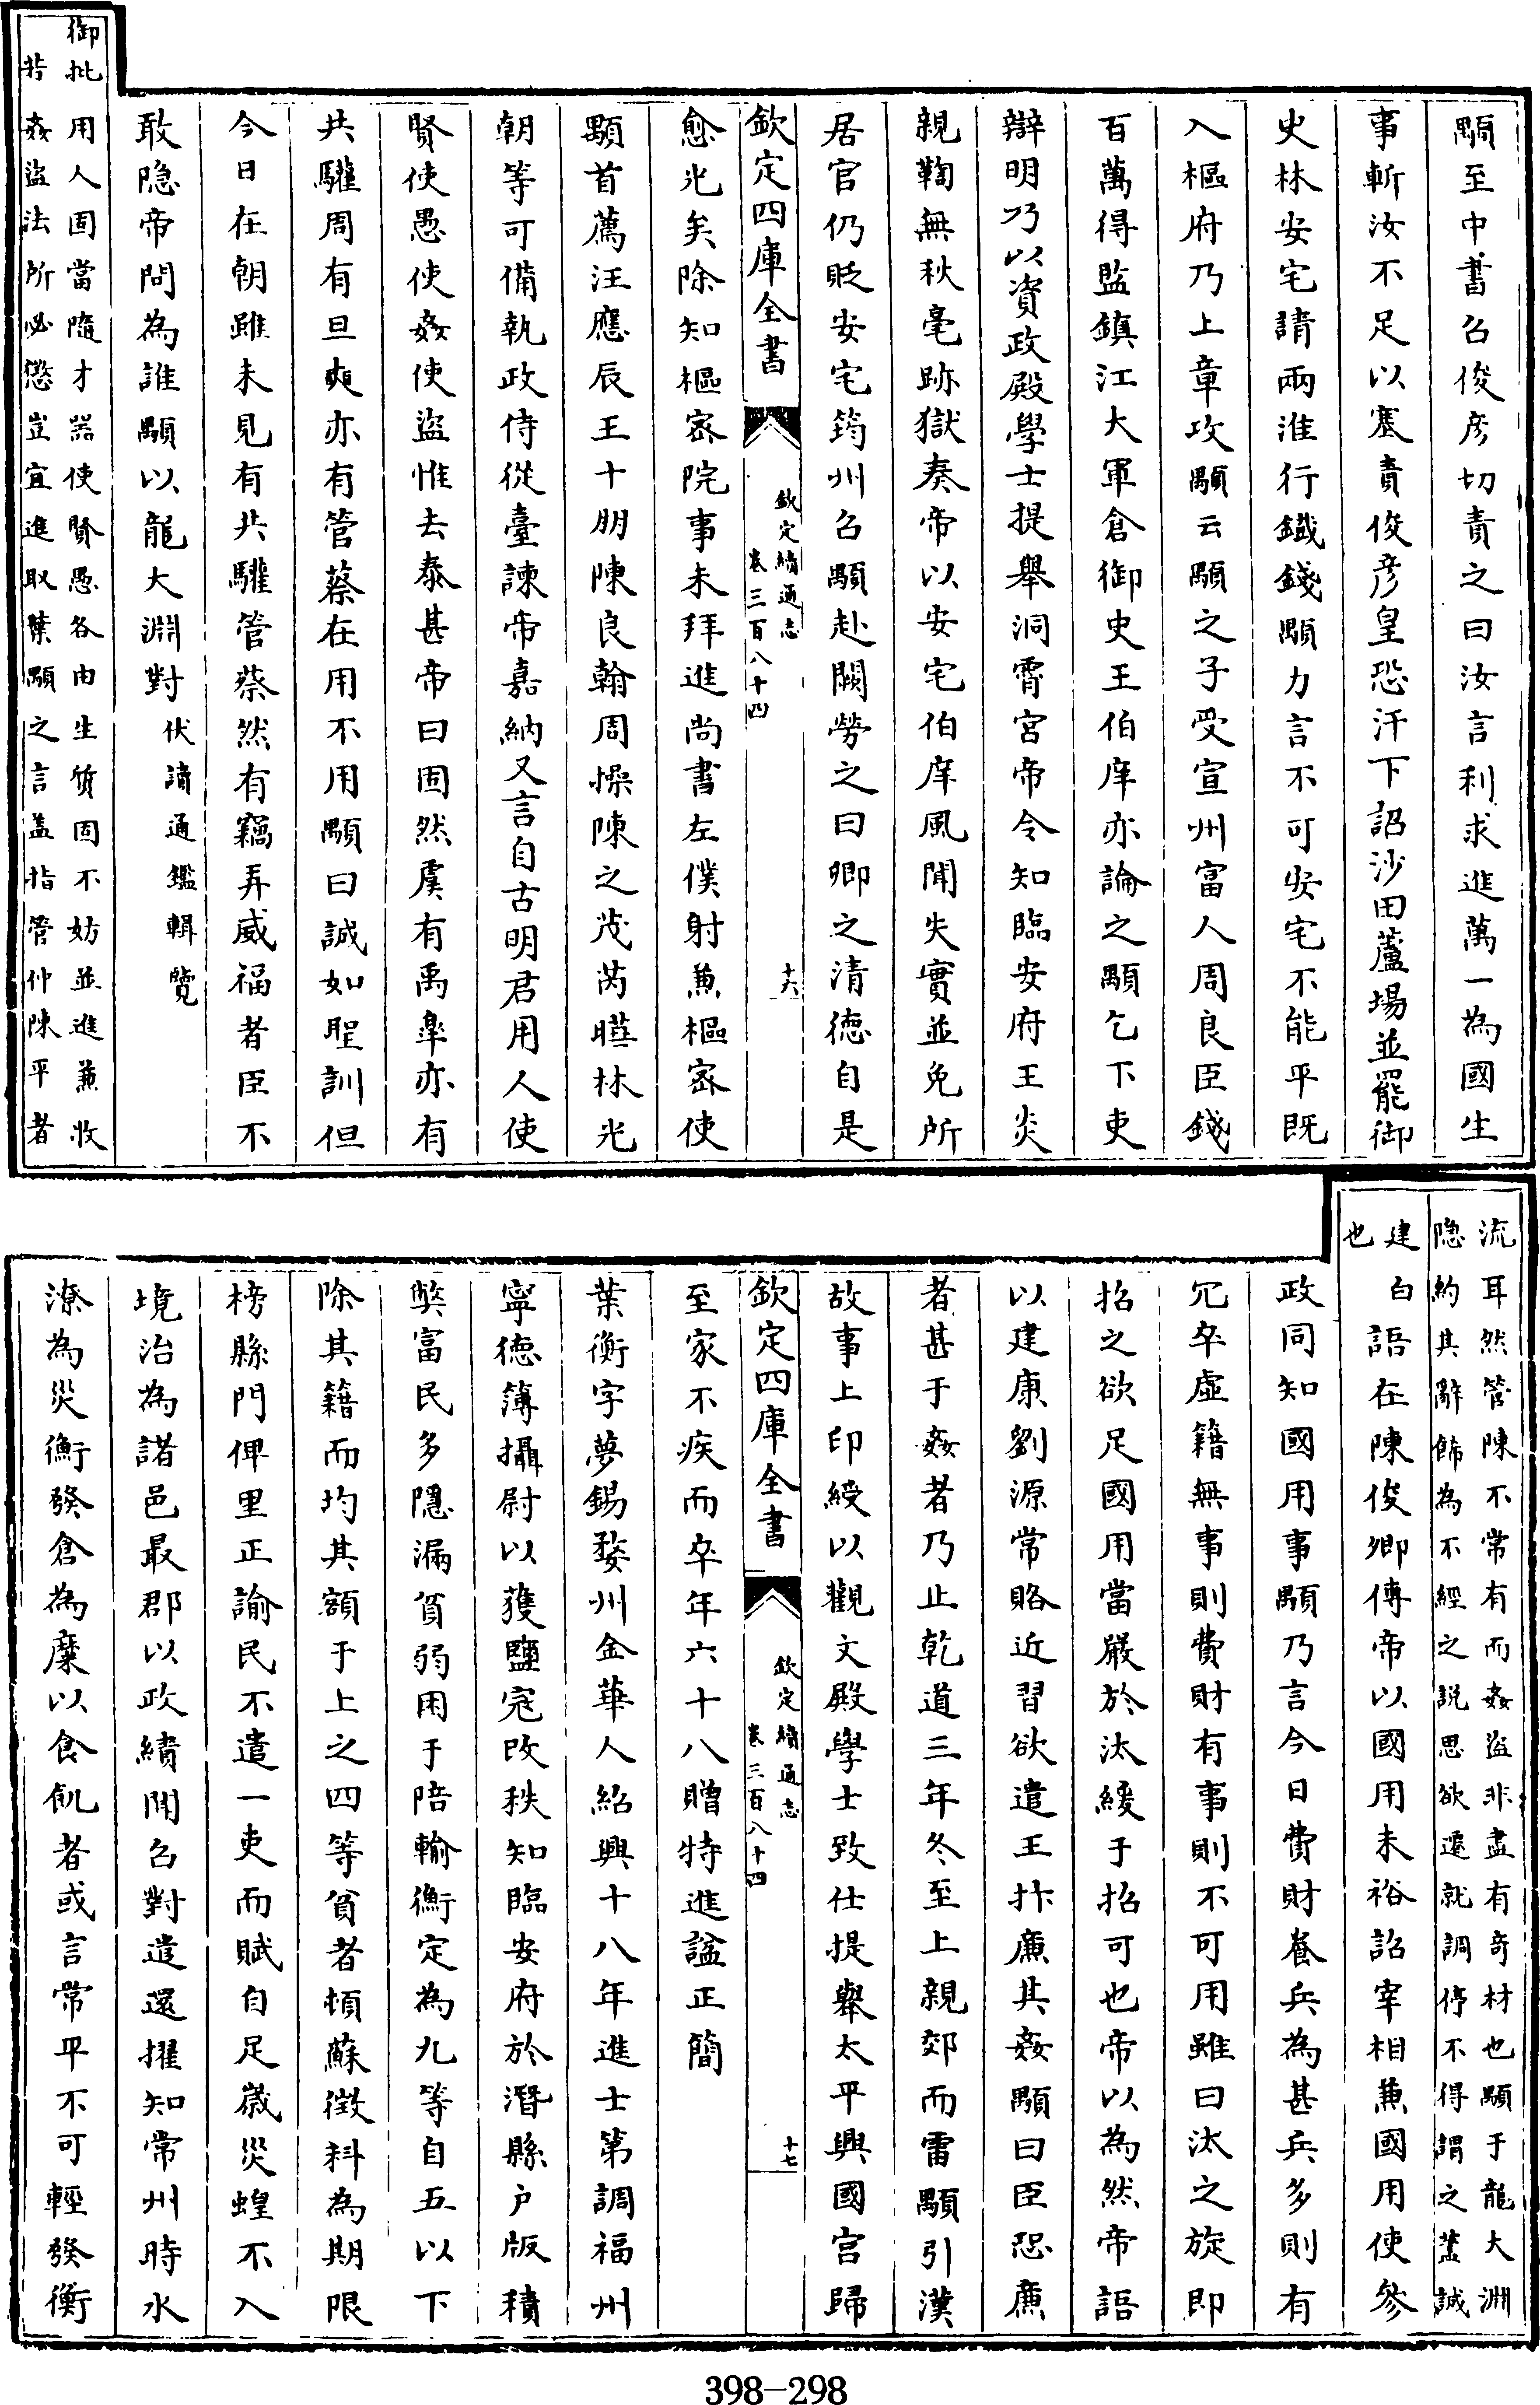 顒至中書召俊彥切責之曰汝言利求進萬一為國生
事斬汝不足以塞責俊彥皇恐汗下詔沙田蘆場並罷御
史林安宅請兩淮行鐡錢顒力言不可安宅不能平既
入樞府乃上章攻顒云顒之子受宣州富人周良臣錢
百萬得監鎮江大軍倉御史王伯庠亦論之顒乞下吏
辯明乃以資政殿學士提舉洞霄宮帝令知臨安府王炎
親鞫無秋毫跡獄奏帝以安宅伯庠風聞失實並免所
居官仍貶安宅筠州召顒赴闕勞之曰卿之清徳自是
欽定四庫全書
欽定續通志
卷三百八十四
十六
愈光矣除知樞宻院事未拜進尚書左僕射兼樞宻使
顒首薦汪應辰王十朋陳良翰周操陳之茂芮曄林光
朝等可備執政侍從臺諫帝嘉納又言自古明君用人使
賢使愚使姦使盜惟去泰甚帝曰固然虞有禹皋亦有
共驩周有旦奭亦有管蔡在用不用顒曰誠如聖訓但
今日在朝雖未見有共驩管蔡然有竊弄威福者臣不
敢隐帝問為誰顒以龍大淵對
伏讀通鑑輯覽
御批用人固當隨才器使賢愚各由生質固不妨並進兼收
若姦盜法所必懲豈宜進取葉顒之言盖指管仲陳平者
流耳然管陳不常有而姦盜非盡有竒材也顒于龍大淵
隐約其辭飾為不經之說思欲遷就調停不得謂之藎誠
建白語在陳俊卿傳帝以國用未裕詔宰相兼國用使參
也
政同知國用事顒乃言今日費財養兵為甚兵多則有
冗卒虚籍無事則費財有事則不可用雖曰汰之旋即
招之欲足國用當嚴於汰緩于招可也帝以為然帝語
以建康劉源常賂近習欲遣王抃亷其姦顒曰臣恐亷
者甚于姦者乃止乾道三年冬至上親郊而雷顒引漢
故事上印綬以觀文殿學士致仕提舉太平興國宮歸
欽定四庫全書
欽定續通志
卷三百八十四
十七
至家不疾而卒年六十八贈特進諡正簡
葉衡字夢錫婺州金華人紹興十八年進士第調福州
寧徳簿攝尉以獲鹽寇改秩知臨安府於潛縣户版積
弊富民多隱漏貧弱困于陪輸衡定為九等自五以下
除其籍而均其額于上之四等貧者頓蘇徵科為期限
榜縣門俾里正諭民不遣一吏而賦自足歳災蝗不入
境治為諸邑最郡以政績聞召對遣還擢知常州時水
潦為災衡發倉為糜以食飢者或言常平不可輕發衡
398-298